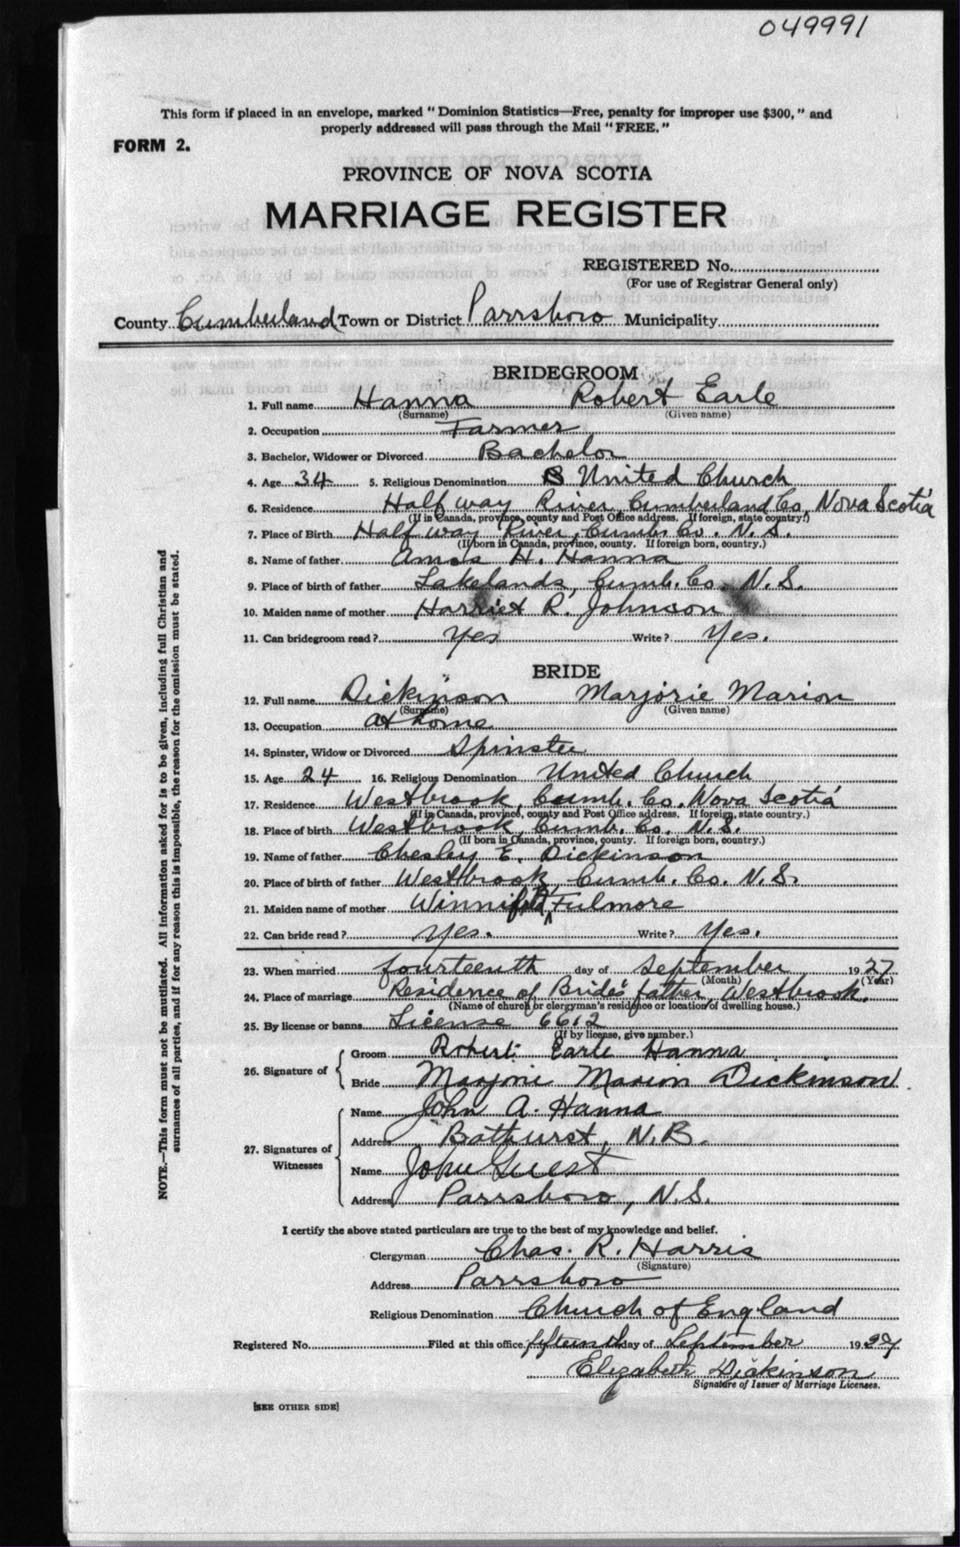 049991
This form if placed in an envelope, marked "Dominion Statistics—Free, penalty for improper use $300," and
properly addressed will pass through the Mail "FREE."
FORM 2.
PROVINCE OF NOVA SCOTIA
MARRIAGE REGISTER
REGISTERED No.
(For use of Registrar General only)
County Cumberland Town or District Parrsboro Municipality
BRIDEGROOM
1. Full name Hanna Robert Earle
(Surname) (Given name)
2. Occupation Farmer
3. Bachelor, Widower or Divorced Bachelor
4. Age 34 5. Religious Denomination United Church
6. Residence Half way River, Cumberland Co, Nova Scotia
(If in Canada, province, county and Post Office address. If foreign, state country.)
7. Place of Birth Half way River, Cumb. Co. N. S.
(If born in Canada, province, county. If foreign born, country.)
8. Name of father Amos H. Hanna
9. Place of birth of father Lakelands, Cumb. Co. N. S.
10. Maiden name of mother Harriet R. Johnson
11. Can bridegroom read? Yes Write? Yes.
BRIDE
12. Full name Dickinson Marjorie Marion
(Surname) (Given name)
13. Occupation at home
14. Spinster, Widow or Divorced Spinster
15. Age 24 16. Religious Denomination United Church
17. Residence Westbrook, Cumb. Co. Nova Scotia
(If in Canada, province, county and Post Office address. If foreign, state country.)
18. Place of birth Westbrook, Cumb. Co. N. S.
(If born in Canada, province, county. If foreign born, country.)
19. Name of father Chesley E. Dickinson
20. Place of birth of father Westbrook, Cumb. Co. N. S.
21. Maiden name of mother Fulmore
22. Can bride read? Yes. Write? Yes.
23. When married fourteenth day of September 1927
(Month) (Year)
24. Place of marriage Residence of Bride's father, Westbrook.
(Name of church or clergyman's residence or location of dwelling house.)
25. By license or banns License 6612
(If by license, give number.)
26. Signature of
Groom Robert Earle Hanna
Bride Marjorie Marion Dickinson.
27. Signatures of Witnesses
Name John A. Hanna
Address Bathurst, N.B.
Name John Guest
Address Parrsboro, N.S.
I certify the above stated particulars are true to the best of my knowledge and belief.
Clergyman Chas. R. Harris
(Signature)
Address Parrsboro
Religious Denomination Church of England
Registered No. Filed at this office fifteenth day of September 1927
Elizabeth Dickinson
Signature of Issuer of Marriage Licenses.
[SEE OTHER SIDE]
NOTE.—This form must not be mutilated. All information asked for is to be given, including full Christian and
surnames of all parties, and if for any reason this is impossible, the reason for the omission must be stated.